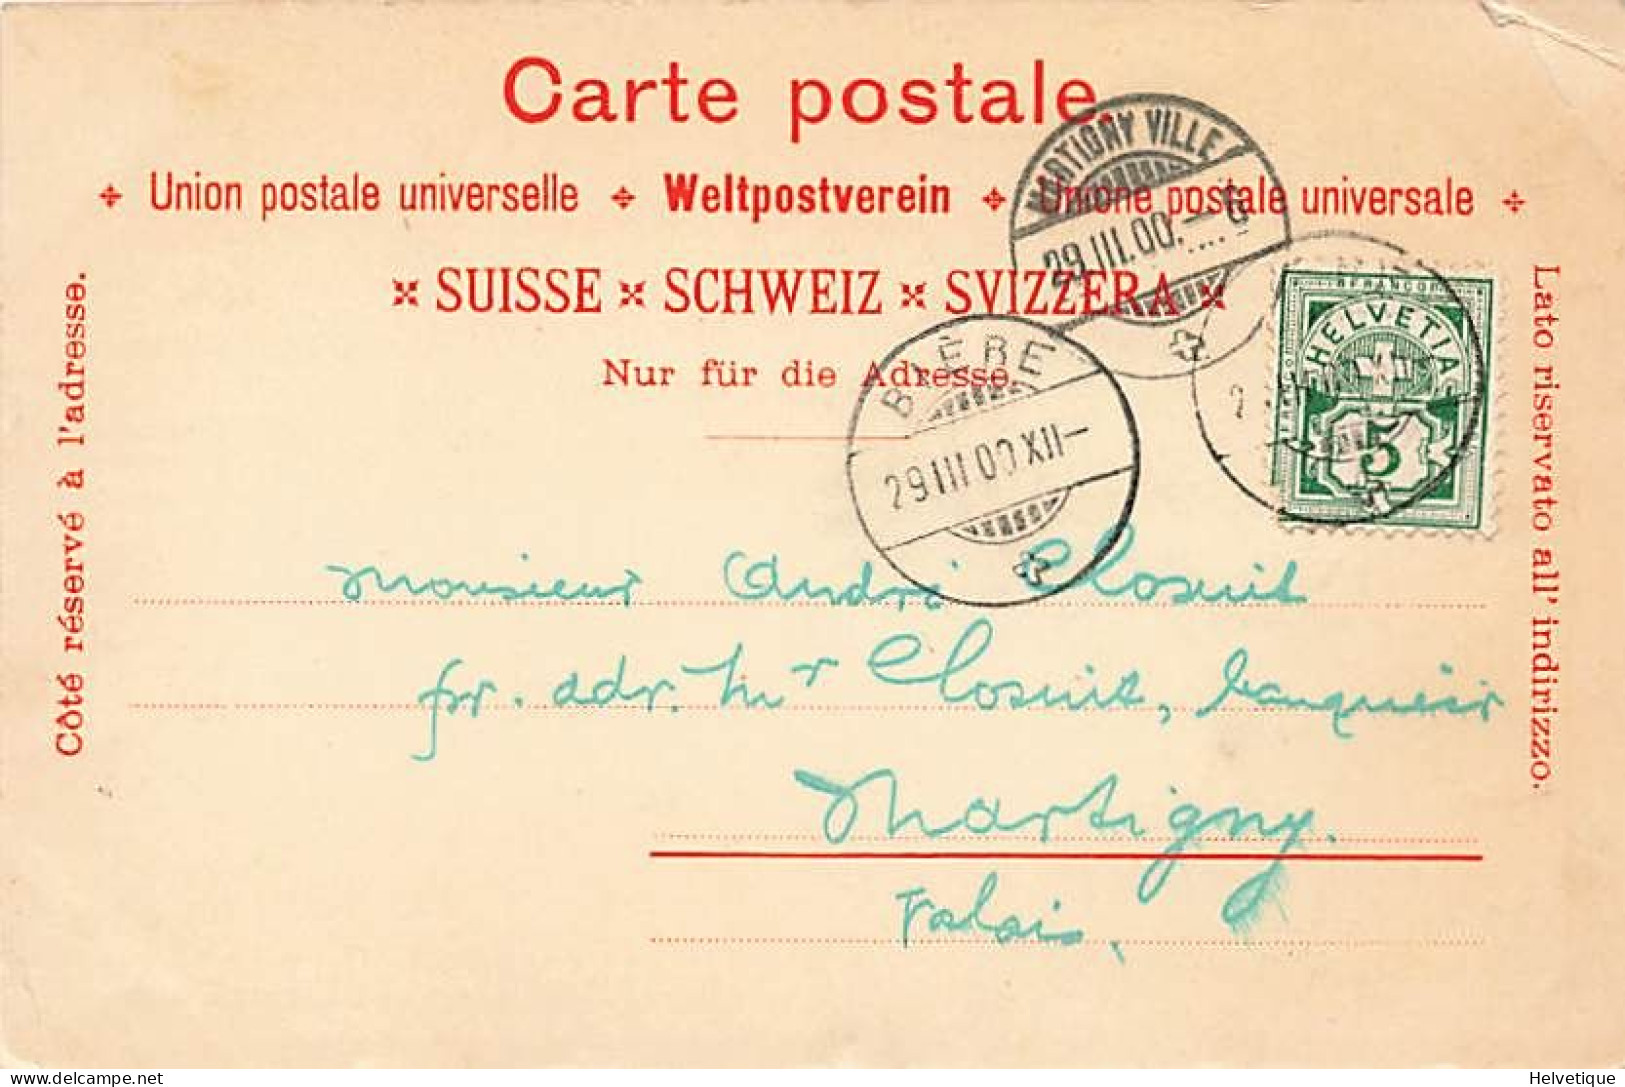 Carte postale.
Union postale universelle Weltpostverein Unione postale universale
SUISSE SCHWEIZ SVIZZERA
Nur für die Adresse.
Côté réservé à l'adresse.
Lato riservato all' indirizzo.
MARTIGNY VILLE
29.III.00.
29 III 00 XII
FRANCO
HELVETIA
5
Monsieur André Closuit
pr. adr. Mr Closuit, banquier
Martigny.
Valais.
Helvetique